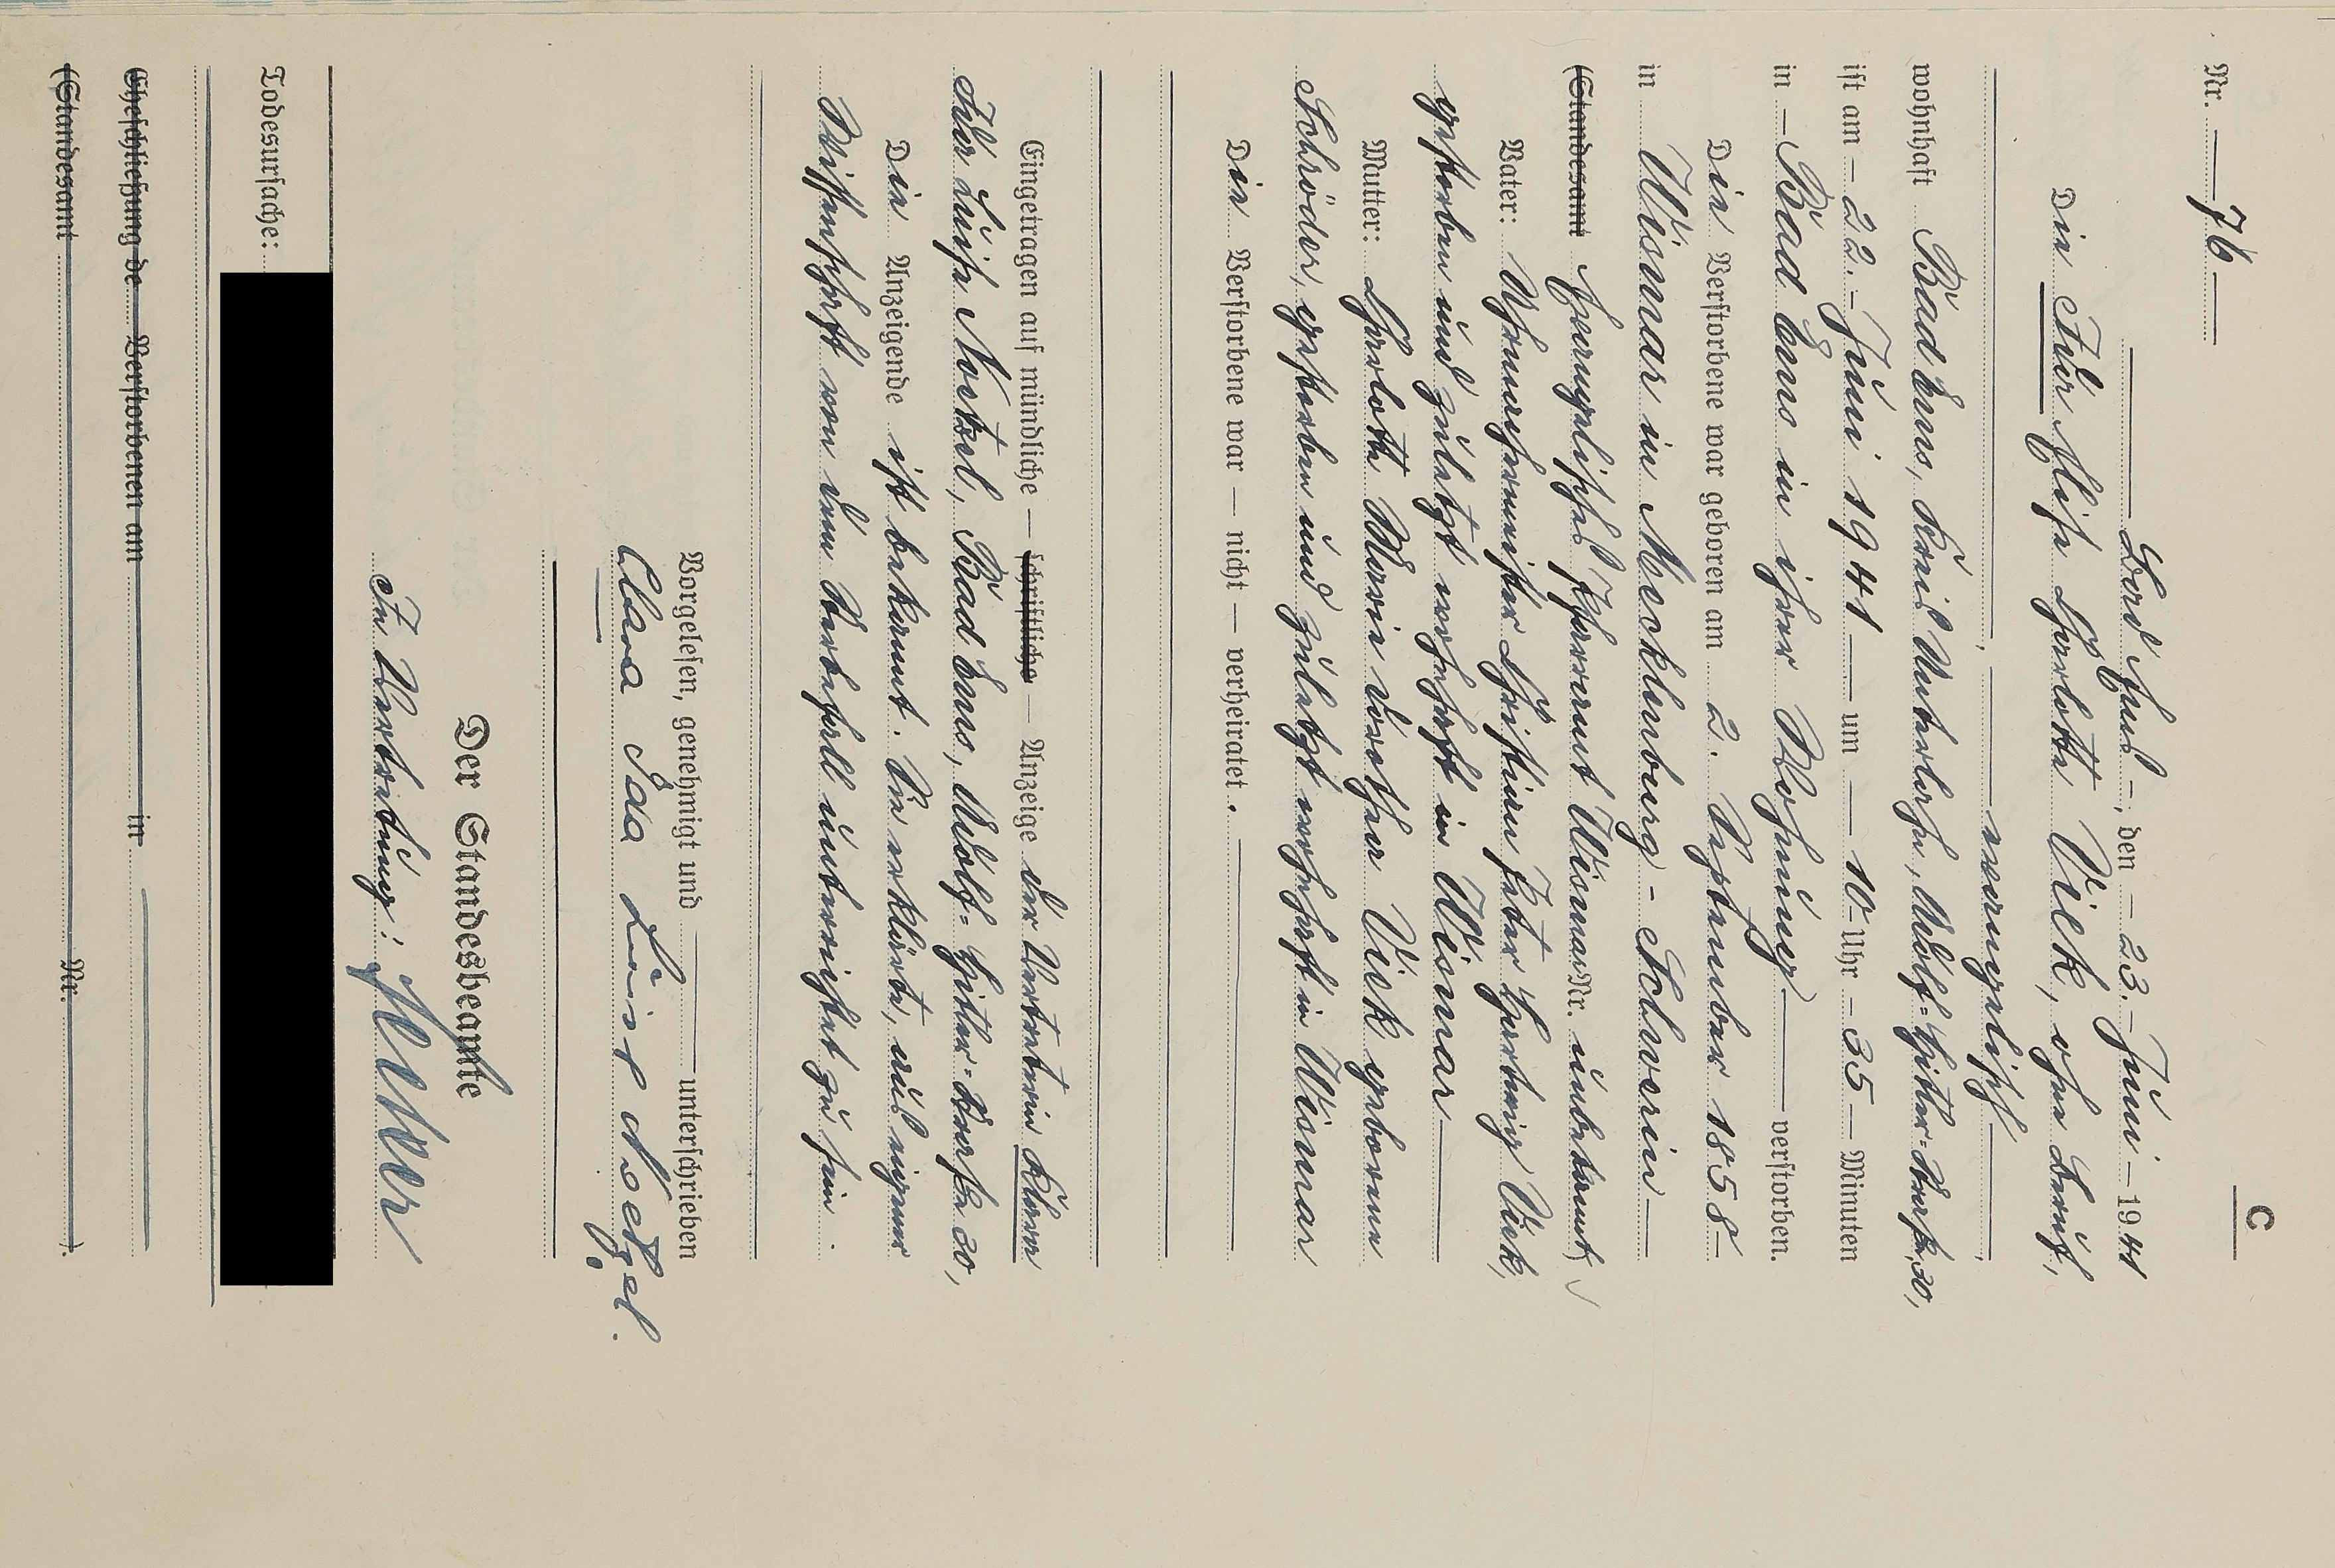 C
Nr. 76
Bad Ems, den 23. Juni 1941
Die Ida Elise Charlotte Vick, ohne Beruf,
evangelisch
wohnhaft Bad Ems, Kreis Unterlahn, Adolf-Hitler-Straße 30,
ist am 22. Juni 1941 um 10 Uhr 35 Minuten
in Bad Ems in ihrer Wohnung verstorben.
Die Verstorbene war geboren am 2. September 1858
in Wismar in Mecklenburg-Schwerin
(Standesamt Evangelisches Pfarramt Wismar Nr. unbekannt)
Vater: Christian Peter Hartwig Vick,
gestorben und zuletzt wohnhaft in Wismar
Mutter: Charlotte Marie Dorothea Vick geborene
Schröder, gestorben und zuletzt wohnhaft in Wismar
Die Verstorbene war – nicht – verheiratet.
Eingetragen auf mündliche – schriftliche – Anzeige der Vertreterin Klara
Ida Luise Noetzel, Bad Ems, Adolf-Hitler-Straße 30,
Die Anzeigende ist bekannt. Sie erklärte, aus eigener
Wissenschaft von dem Sterbefall unterrichtet zu sein.
Vorgelesen, genehmigt und unterschrieben
Clara Ida Luise Noetzel.
Der Standesbeamte
In Vertretung:
Todesursache:
Eheschließung de Verstorbenen am in
(Standesamt Nr. ).